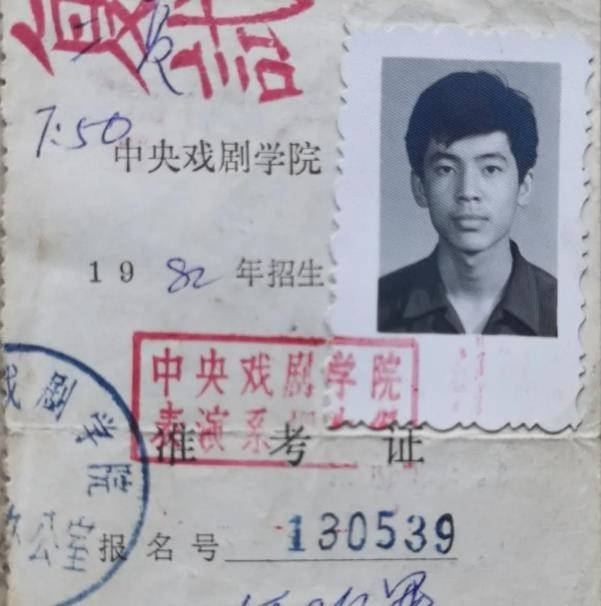 复试
7:50
中央戏剧学院
1982年招生
中央戏剧学院
表演系招生
准考证
戏剧学院
办公室
报名号 130539